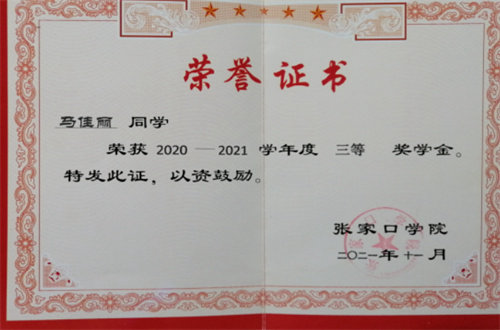 荣誉证书
马佳丽 同学
荣获 2020 — 2021 学年度 三等 奖学金。
特发此证，以资鼓励。
张家口学院
二〇二一年十一月